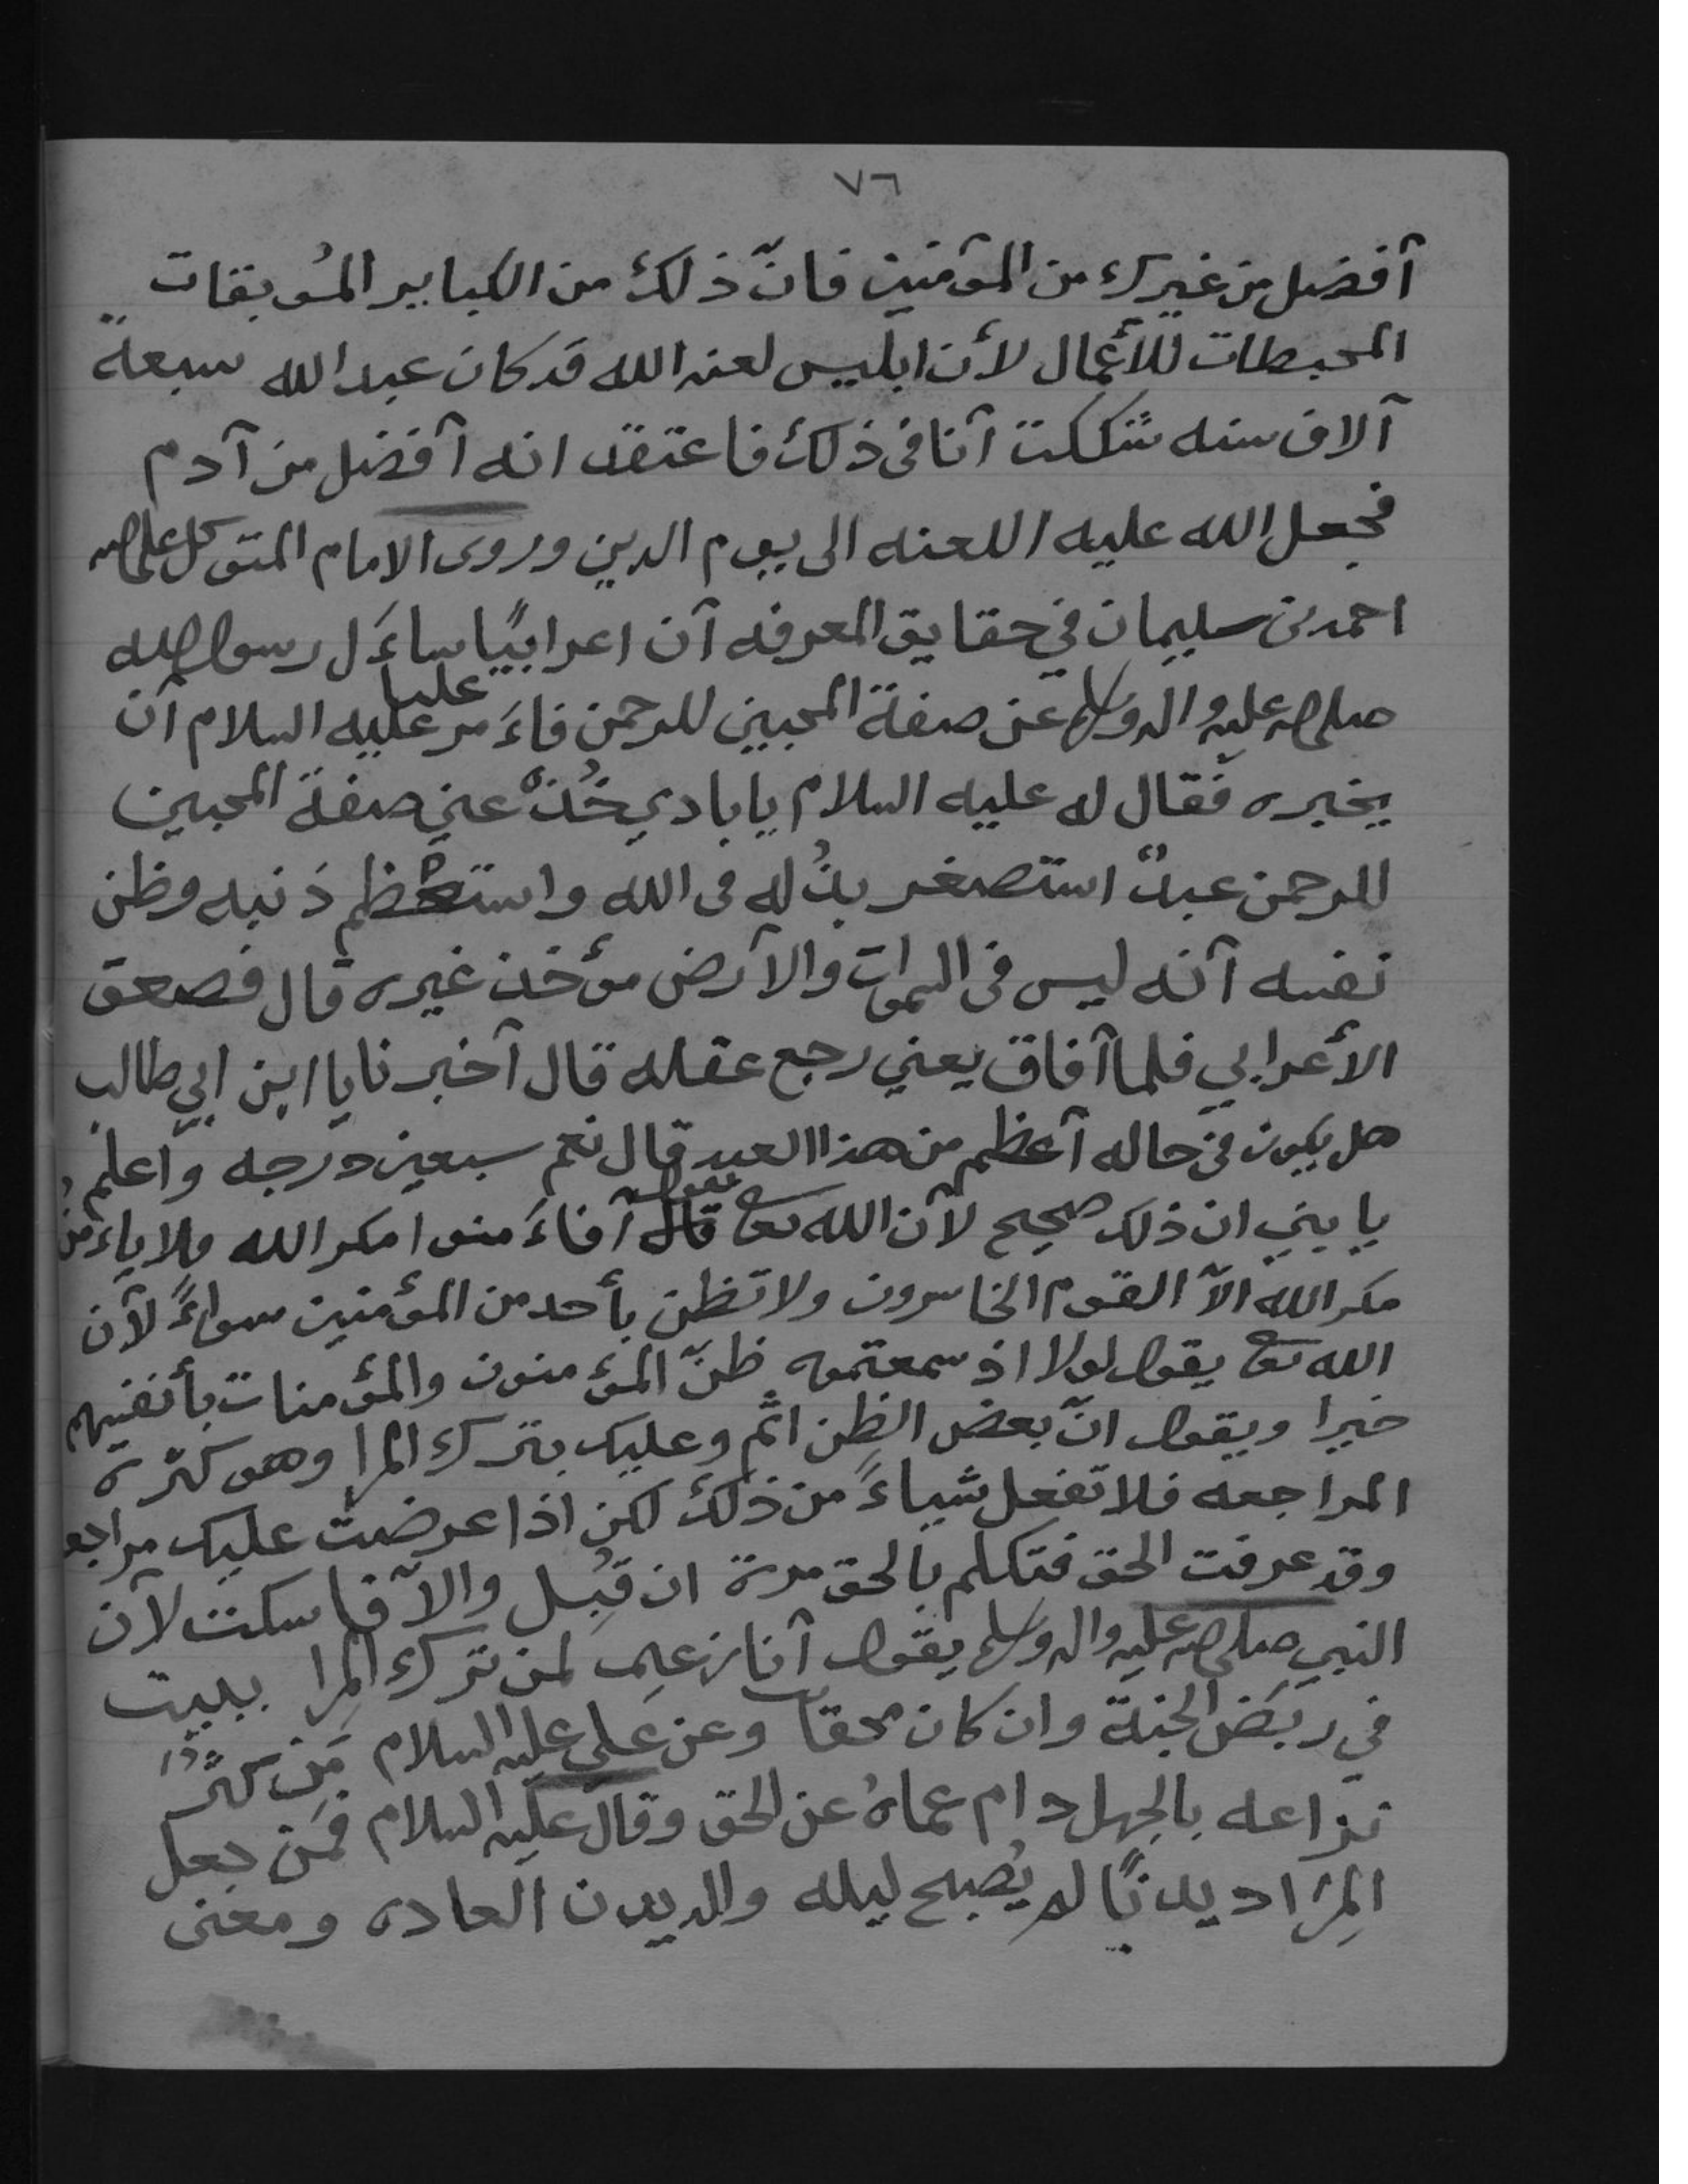 ٧٦
أفضل من غيرك من المؤمنين فانّ ذلك من الكباير المُوبقات
المحبطات للأعمال لأن ابليس لعنه الله قد كان عبد الله سبعة
آلاف سنه شككت أنا فى ذلك فاعتقد انه أفضل من آدم
فجعل الله عليه اللعنه الى يوم الدين وروى الامام المتوكل على الله
احمد بن سليمان في حقايق المعرفه أن اعرابيًا ساءَل رسول الله
صلى الله عليه واله وسلم عن صفة المحبين للرحمن فاءَمر عليا عليه السلام أن
يخبره فقال له عليه السلام يا بادي خُذْ عني صفة المحبين
للرحمن عبدٌ استصغر بذُله فى الله واستعظم ذنبه وظن
نفسه أنه ليس فى السموات والأرض مؤخذ غيره قال فصعق
الأعرابي فلما أفاق يعني رجع عقله قال أخبرنا يا ابن ابي طالب
هل يكون في حاله أعظم من هذا العبد قال نعم سبعين درجه واعلم
يا بني ان ذلك صحيح لأن الله تعا يقول أفاءَمنوا مكر الله فلا ياءَمنُ
مكر الله الاّ القوم الخاسرون ولا تظن بأحد من المؤمنين سواءً لأن
الله تعا يقول لولا اذ سمعتموه ظنّ المؤمنون والمؤمنات بأنفسهم
خيرا ويقول انّ بعض الظن اثم وعليك بترك المرا وهو كثرة
المراجعه فلا تفعل شياءً من ذلك لكن اذا عرضت عليك مراجعه
وقد عرفت الحق فتكلم بالحق مرة ان قُبِل والاّ فاسكت لأن
النبي صلى الله عليه واله وسلم يقول أنا زعيم لمن ترك المرا ببيت
في ربَض الجنة وان كان محقا وعن علي عليه السلام مَن كثُر
نزاعه بالجهل دام عماهُ عن الحق وقال عليه السلام فمَن جعل
المِرَا ديدنًا لم يُصبح ليله والديدن العاده ومعنى